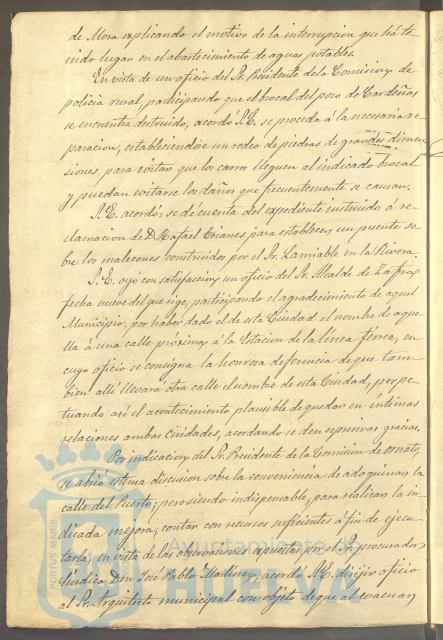 de Mora explicando el motivo de la interrupcion que há te
nido lugar en el abastecimiento de aguas potables.
En vista de un oficio del Sr. Presidente de la Comision de
policia rural, participando que el brocal del pozo de Cardeñas
se encuentra destruido, acordó S.E. se proceda á la necesaria re-
paracion, estableciendose un rodeo de piedras de grandes dimen
siones, para evitar que los carros lleguen al indicado brocal
y puedan evitarse los daños que frecuentemente se causan.
S.E. acordó; se dé cuenta del expediente instruido á re-
clamacion de D. Rafael Trianes para establecer un puente so-
bre los malecones construidos por el Sr. Lamiable en la Rivera.
S.E. oyó con satisfaccion un oficio del Sr. Alcalde de Zafra,
fecha nueve del que rige, participando el agradecimiento de aquel
Municipio, por haber dado el de esta Ciudad el nombre de aque-
lla á una calle proxima á la Estacion de la linea ferrea, en
cuyo oficio se consigna la honrosa deferencia de que tam-
bien alli llevará otra calle el nombre de esta Ciudad, perpe
tuando asi el acontecimiento plausible de quedar en intimas
relaciones ambas Ciudades, acordando se den expresivas gracias.
Por indicacion del Sr. Presidente de la Comision de ornato,
se abrió estensa discusion sobre la conveniencia de adoquinar la
calle del Puerto; pero siendo indispensable, para realizar la in-
dicada mejora, contar con recursos suficientes á fin de ejecu-
tarla, en vista de las observaciones expuestas por el Sr. procurador
Sindico Don José Pablo Martinez, acordó S.E. dirijir oficio
al Sr. Arquitecto municipal con objeto de que al evacuar
Ayuntamiento de
PORTUS MARIS